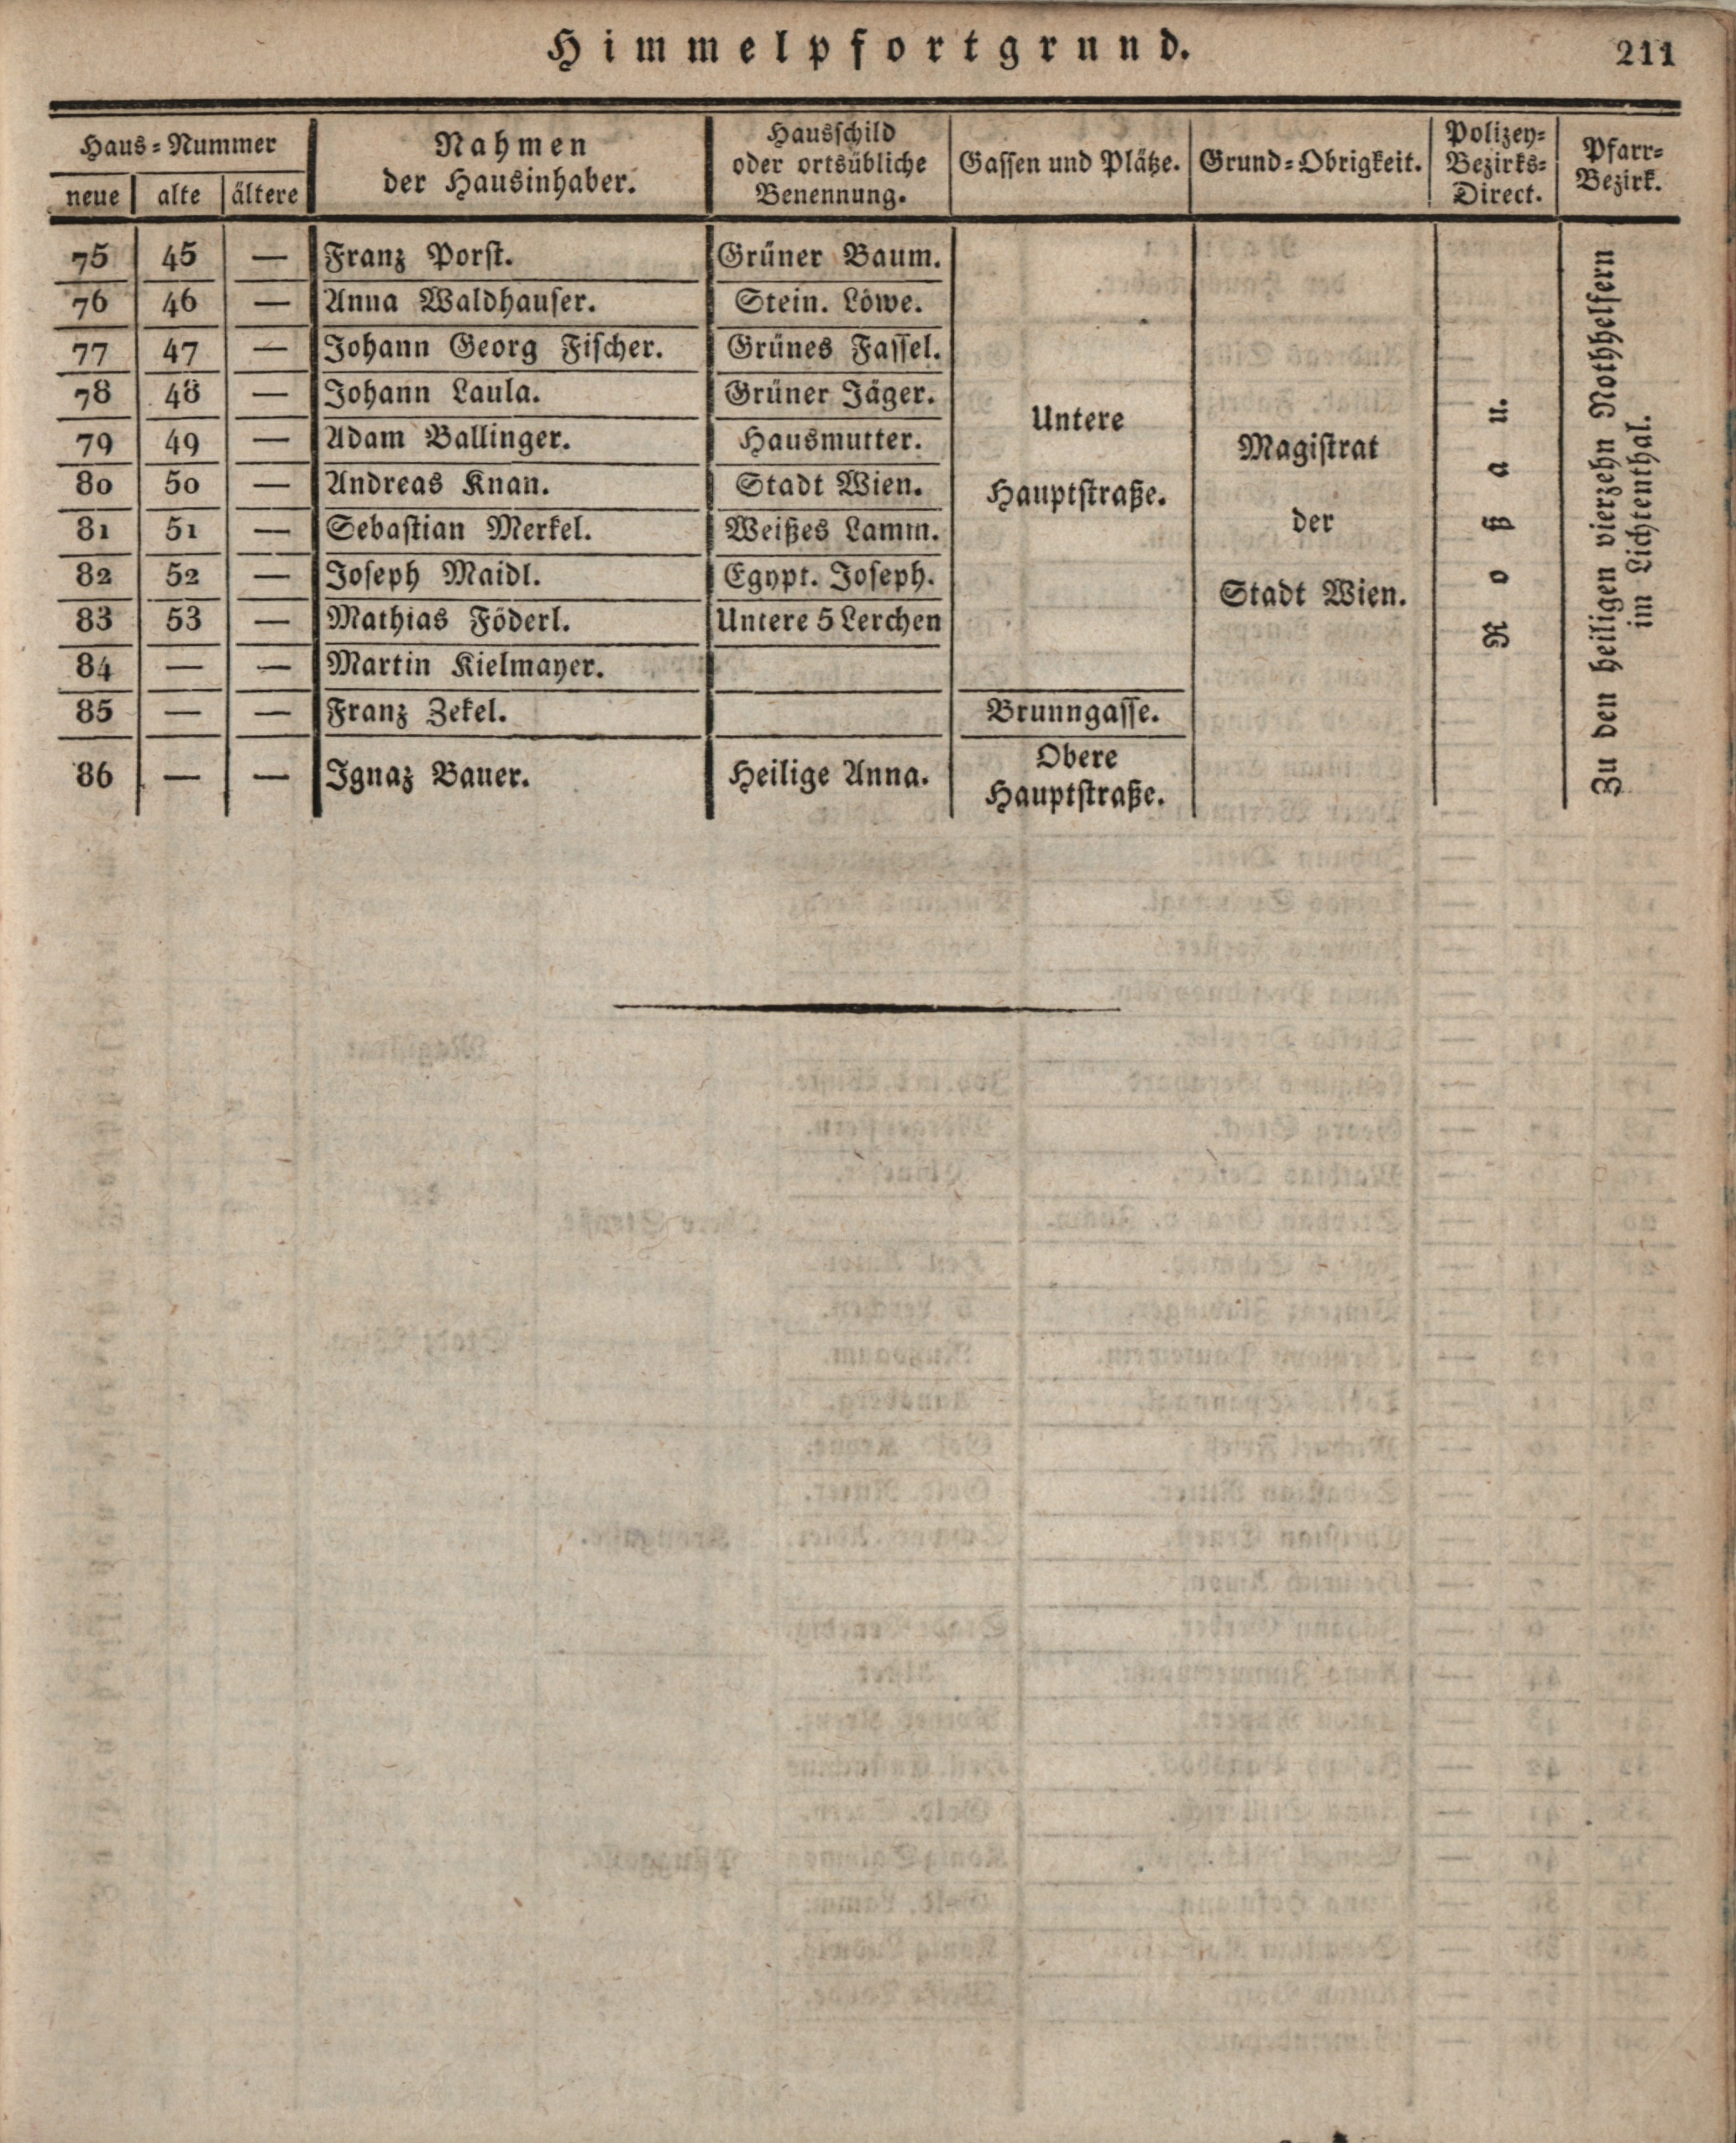 Himmelpfortgrund. 211
Haus-Nummer
neue alte ältere
Nahmen
der Hausinhaber.
Hausschild
oder ortsübliche
Benennung.
Gassen und Plätze.
Grund-Obrigkeit.
Polizey-
Bezirks-
Direct.
Pfarr-
Bezirk.
75 45 — Franz Porst. Grüner Baum.
76 46 — Anna Waldhauser. Stein. Löwe.
77 47 — Johann Georg Fischer. Grünes Fassel.
78 48 — Johann Laula. Grüner Jäger.
79 49 — Adam Ballinger. Hausmutter.
80 50 — Andreas Knan. Stadt Wien.
81 51 — Sebastian Merkel. Weißes Lamm.
82 52 — Joseph Maidl. Egypt. Joseph.
83 53 — Mathias Föderl. Untere 5 Lerchen
84 — — Martin Kielmayer.
85 — — Franz Zekel.
86 — — Ignaz Bauer. Heilige Anna.
Untere
Hauptstraße.
Brunngasse.
Obere
Hauptstraße.
Magistrat
der
Stadt Wien.
Roßau.
Zu den heiligen vierzehn Nothhelfern
im Lichtenthal.